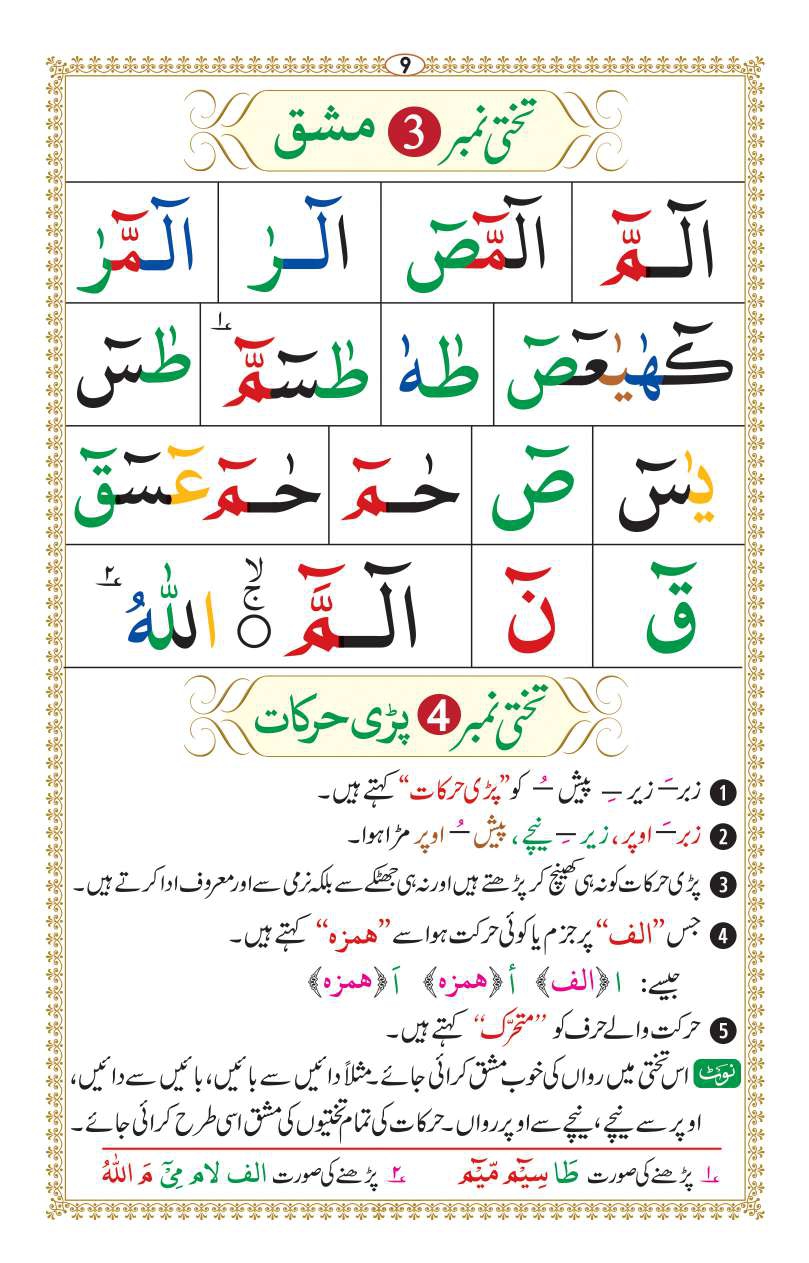 9
تختی نمبر 3 مشق
الٓـمّٓ الٓمّٓصٓ الٓـرٰ الٓـمّٓرٰ
كٓهٰيٰعٓصٓ طٰهٰ طٰسٓمّٓ ؁۱ طٰسٓ
يٰسٓ صٓ حٰـمٓ حٰـمٓ عٓسٓقٓ
قٓ نٓ الٓـمَّٓ ۙ ۚ ○ اللّٰهُ ؁۲
تختی نمبر 4 پڑی حرکات
1 زبر ـَ زیر ـِ پیش ـُ کو ”پڑی حرکات“ کہتے ہیں۔
2 زبر ـَ اوپر، زیر ـِ نیچے، پیش ـُ اوپر مڑا ہوا۔
3 پڑی حرکات کو نہ ہی کھینچ کر پڑھتے ہیں اور نہ ہی جھٹکے سے بلکہ نرمی سے اور معروف ادا کرتے ہیں۔
4 جس ”الف“ پر جزم یا کوئی حرکت ہو اسے ”ھمزہ“ کہتے ہیں۔
جیسے: ا ﴿الف﴾ أ ﴿ھمزہ﴾ اَ ﴿ھمزہ﴾
5 حرکت والے حرف کو ”متحرّک“ کہتے ہیں۔
نوٹ اس تختی میں رواں کی خوب مشق کرائی جائے۔ مثلاً دائیں سے بائیں، بائیں سے دائیں،
اوپر سے نیچے، نیچے سے اوپر رواں۔ حرکات کی تمام تختیوں کی مشق اسی طرح کرائی جائے۔
؁۱ پڑھنے کی صورت طَا سِیْٓم مِّیْٓم ؁۲ پڑھنے کی صورت الف لام مِیْٓ مَ اللّٰهُ